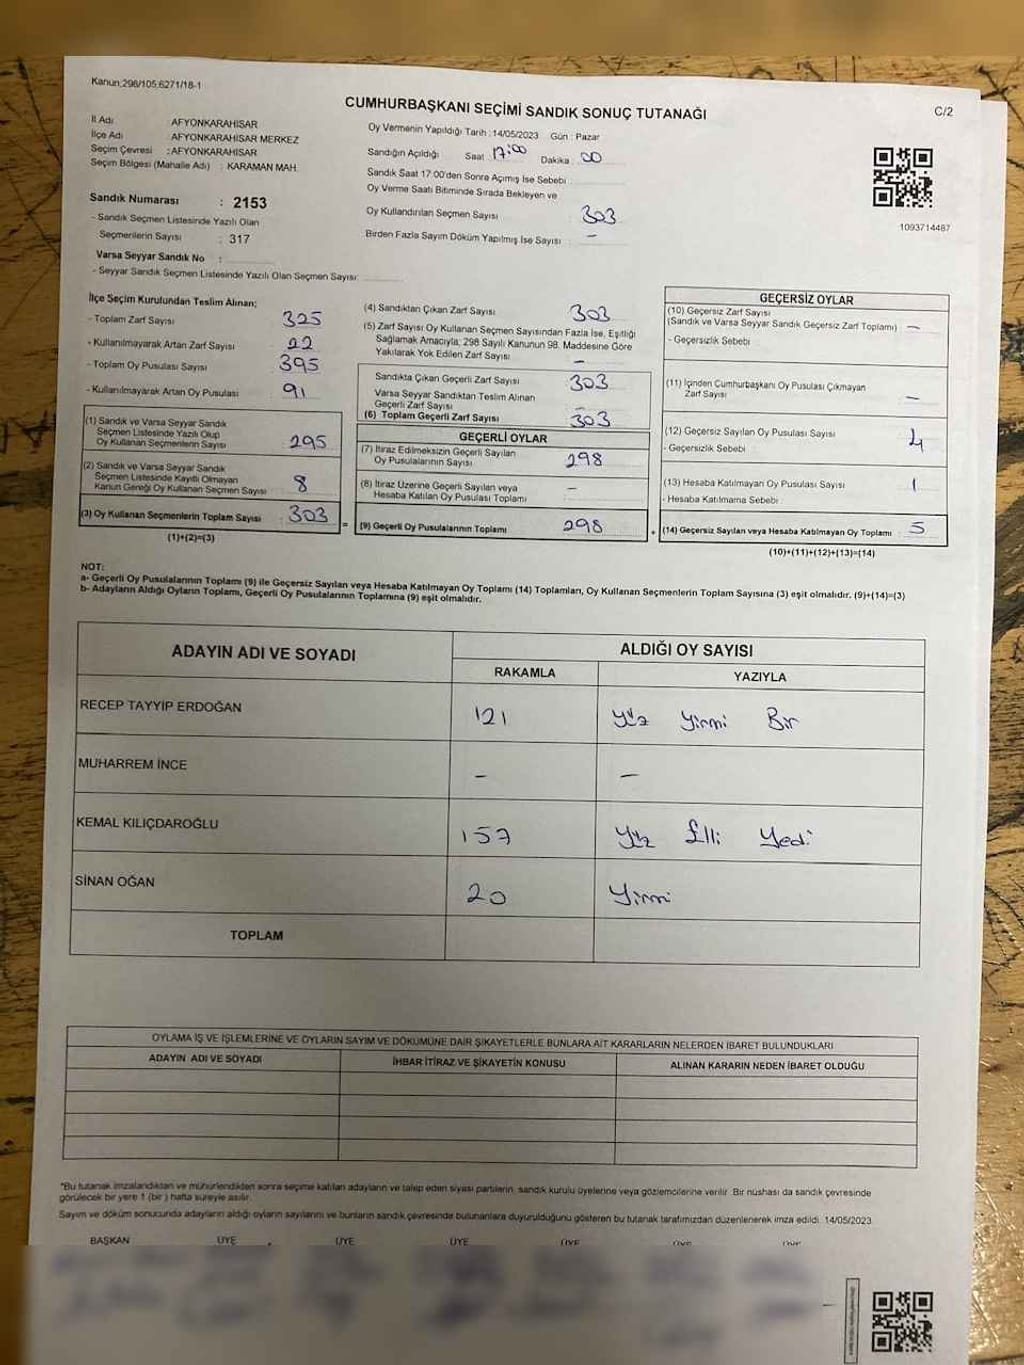 Kanun;298/105;6271/18-1
C/2
CUMHURBAŞKANI SEÇİMİ SANDIK SONUÇ TUTANAĞI
İl Adı : AFYONKARAHİSAR
İlçe Adı : AFYONKARAHİSAR MERKEZ
Seçim Çevresi : AFYONKARAHİSAR
Seçim Bölgesi (Mahalle Adı) : KARAMAN MAH.
Sandık Numarası : 2153
- Sandık Seçmen Listesinde Yazılı Olan
Seçmenlerin Sayısı : 317
Varsa Seyyar Sandık No :
- Seyyar Sandık Seçmen Listesinde Yazılı Olan Seçmen Sayısı:
Oy Vermenin Yapıldığı Tarih :14/05/2023 Gün : Pazar
Sandığın Açıldığı Saat 17:00 Dakika : 00
Sandık Saat 17:00'den Sonra Açımış İse Sebebi :
Oy Verme Saati Bitiminde Sırada Bekleyen ve
Oy Kullandırılan Seçmen Sayısı : 303
Birden Fazla Sayım Döküm Yapılmış İse Sayısı : –
1093714487
İlçe Seçim Kurulundan Teslim Alınan;
- Toplam Zarf Sayısı 325
- Kullanılmayarak Artan Zarf Sayısı 22
- Toplam Oy Pusulası Sayısı 395
- Kullanılmayarak Artan Oy Pusulası 91
(1) Sandık ve Varsa Seyyar Sandık
Seçmen Listesinde Yazılı Olup
Oy Kullanan Seçmenlerin Sayısı 295
(2) Sandık ve Varsa Seyyar Sandık
Seçmen Listesinde Kayıtlı Olmayan
Kanun Gereği Oy Kullanan Seçmen Sayısı 8
(3) Oy Kullanan Seçmenlerin Toplam Sayısı 303
(1)+(2)=(3)
=
(4) Sandıktan Çıkan Zarf Sayısı 303
(5) Zarf Sayısı Oy Kullanan Seçmen Sayısından Fazla İse, Eşitliği
Sağlamak Amacıyla; 298 Sayılı Kanunun 98. Maddesine Göre
Yakılarak Yok Edilen Zarf Sayısı –
Sandıkta Çıkan Geçerli Zarf Sayısı 303
Varsa Seyyar Sandıktan Teslim Alınan
Geçerli Zarf Sayısı –
(6) Toplam Geçerli Zarf Sayısı 303
GEÇERLİ OYLAR
(7) İtiraz Edilmeksizin Geçerli Sayılan
Oy Pusulalarının Sayısı 298
(8) İtiraz Üzerine Geçerli Sayılan veya
Hesaba Katılan Oy Pusulası Toplamı –
(9) Geçerli Oy Pusulalarının Toplamı 298
+
GEÇERSİZ OYLAR
(10) Geçersiz Zarf Sayısı
(Sandık ve Varsa Seyyar Sandık Geçersiz Zarf Toplamı) –
- Geçersizlik Sebebi :
(11) İçinden Cumhurbaşkanı Oy Pusulası Çıkmayan
Zarf Sayısı –
(12) Geçersiz Sayılan Oy Pusulası Sayısı 4
- Geçersizlik Sebebi :
(13) Hesaba Katılmayan Oy Pusulası Sayısı 1
- Hesaba Katılmama Sebebi :
(14) Geçersiz Sayılan veya Hesaba Katılmayan Oy Toplamı 5
(10)+(11)+(12)+(13)=(14)
NOT:
a- Geçerli Oy Pusulalarının Toplamı (9) ile Geçersiz Sayılan veya Hesaba Katılmayan Oy Toplamı (14) Toplamları, Oy Kullanan Seçmenlerin Toplam Sayısına (3) eşit olmalıdır. (9)+(14)=(3)
b- Adayların Aldığı Oyların Toplamı, Geçerli Oy Pusulalarının Toplamına (9) eşit olmalıdır.
ADAYIN ADI VE SOYADI
ALDIĞI OY SAYISI
RAKAMLA YAZIYLA
RECEP TAYYİP ERDOĞAN 121 Yüz Yirmi Bir
MUHARREM İNCE – –
KEMAL KILIÇDAROĞLU 157 Yüz Elli Yedi
SİNAN OĞAN 20 Yirmi
TOPLAM
OYLAMA İŞ VE İŞLEMLERİNE VE OYLARIN SAYIM VE DÖKÜMÜNE DAİR ŞİKAYETLERLE BUNLARA AİT KARARLARIN NELERDEN İBARET BULUNDUKLARI
ADAYIN ADI VE SOYADI İHBAR İTİRAZ VE ŞİKAYETİN KONUSU ALINAN KARARIN NEDEN İBARET OLDUĞU
*Bu tutanak imzalandıktan ve mühürlendikten sonra seçime katılan adayların ve talep eden siyasi partilerin, sandık kurulu üyelerine veya gözlemcilerine verilir. Bir nüshası da sandık çevresinde
görülecek bir yere 1 (bir) hafta süreyle asılır.
Sayım ve döküm sonucunda adayların aldığı oyların sayılarını ve bunların sandık çevresinde bulunanlara duyurulduğunu gösteren bu tutanak tarafımızdan düzenlenerek imza edildi. 14/05/2023
BAŞKAN ÜYE ÜYE ÜYE ÜYE ÜYE ÜYE